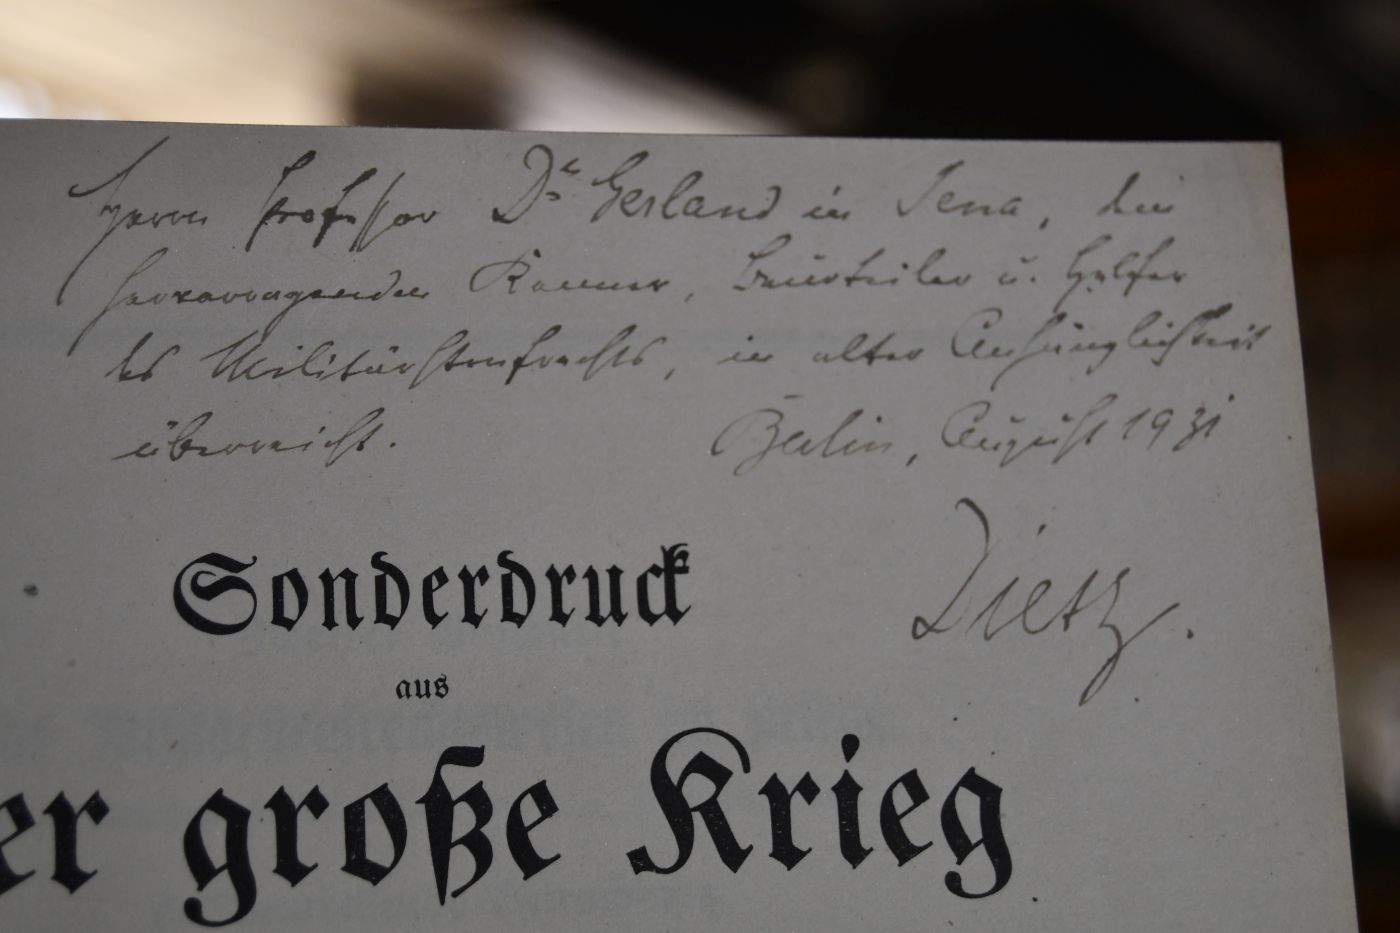 Herrn Professor Dr. Gerland in Jena, dem
hervorragenden Kenner, Beurteiler u. Helfer
des Militärstrafrechts, in alter Anhänglichkeit
überreicht. Berlin, August 1931
Dietz.
Sonderdruck
aus
er große Krieg